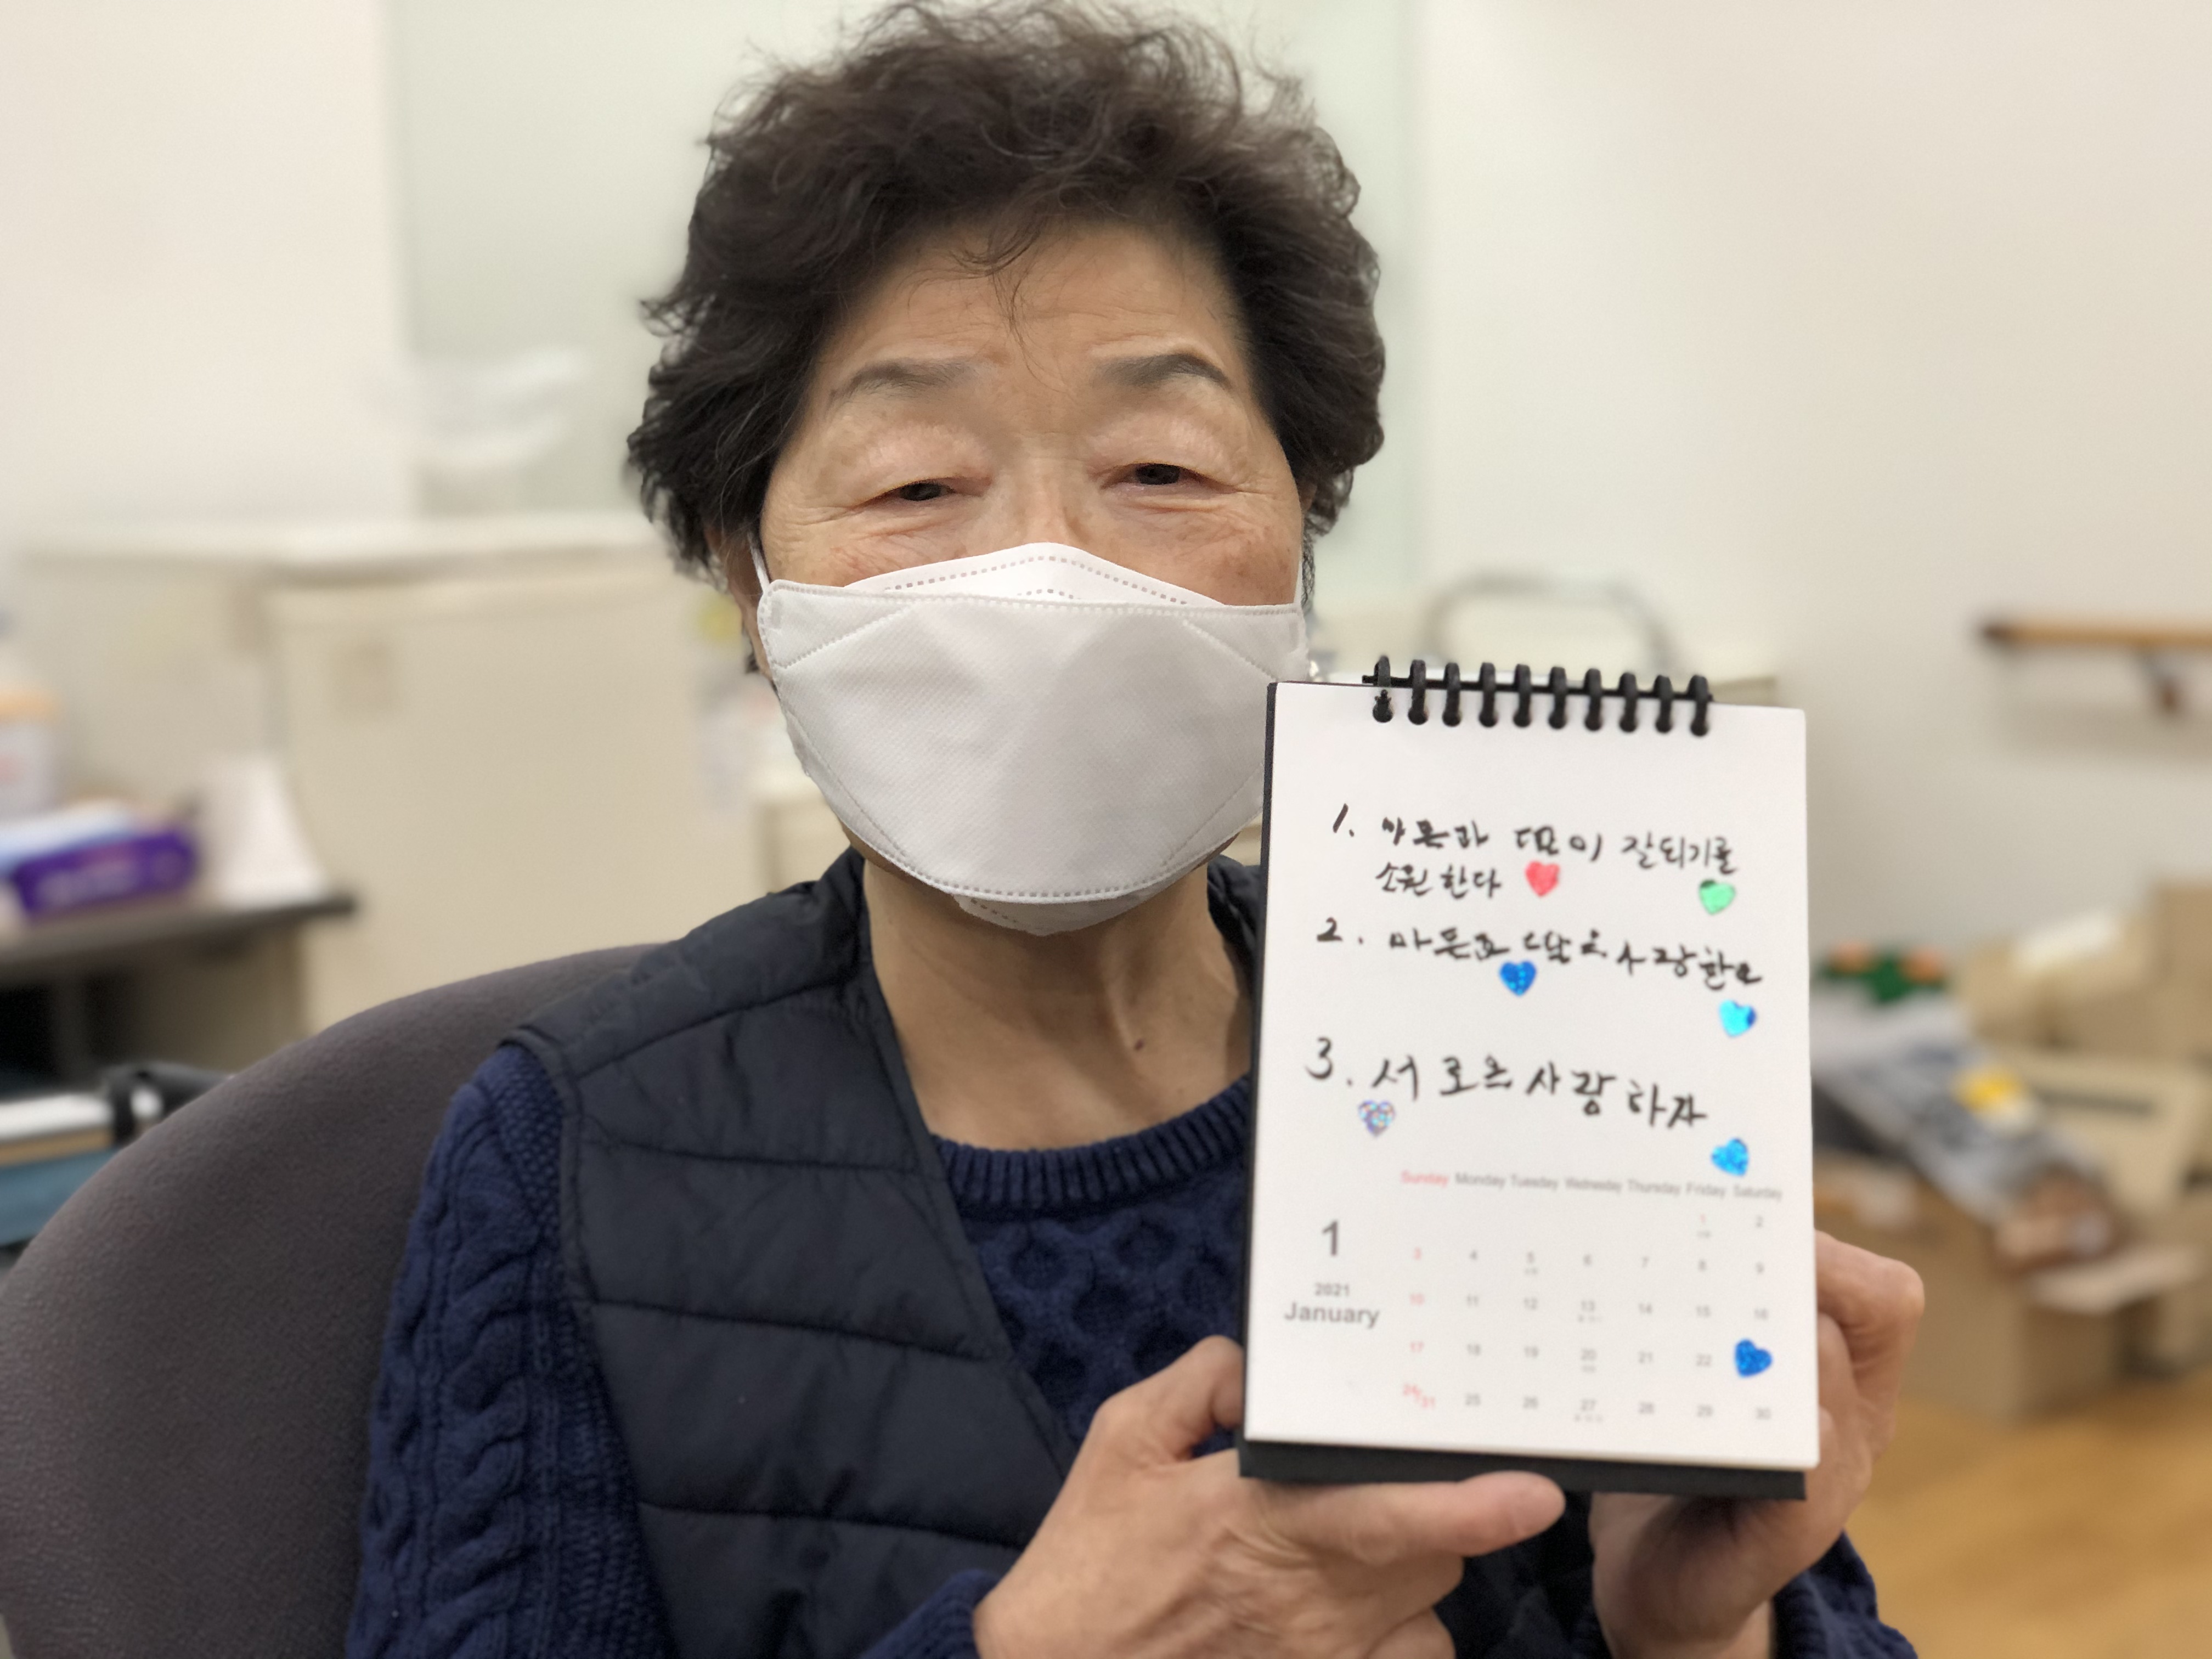 1. 마음과 몸이 잘되기를
소원한다
2.
3. 서로 사랑하자
Sunday Monday Tuesday Wednesday Thursday Friday Saturday
1 2
1
3 4 5 6 7 8 9
2021
January
10 11 12 13 14 15 16
17 18 19 20 21 22
24/31 25 26 27 28 29 30